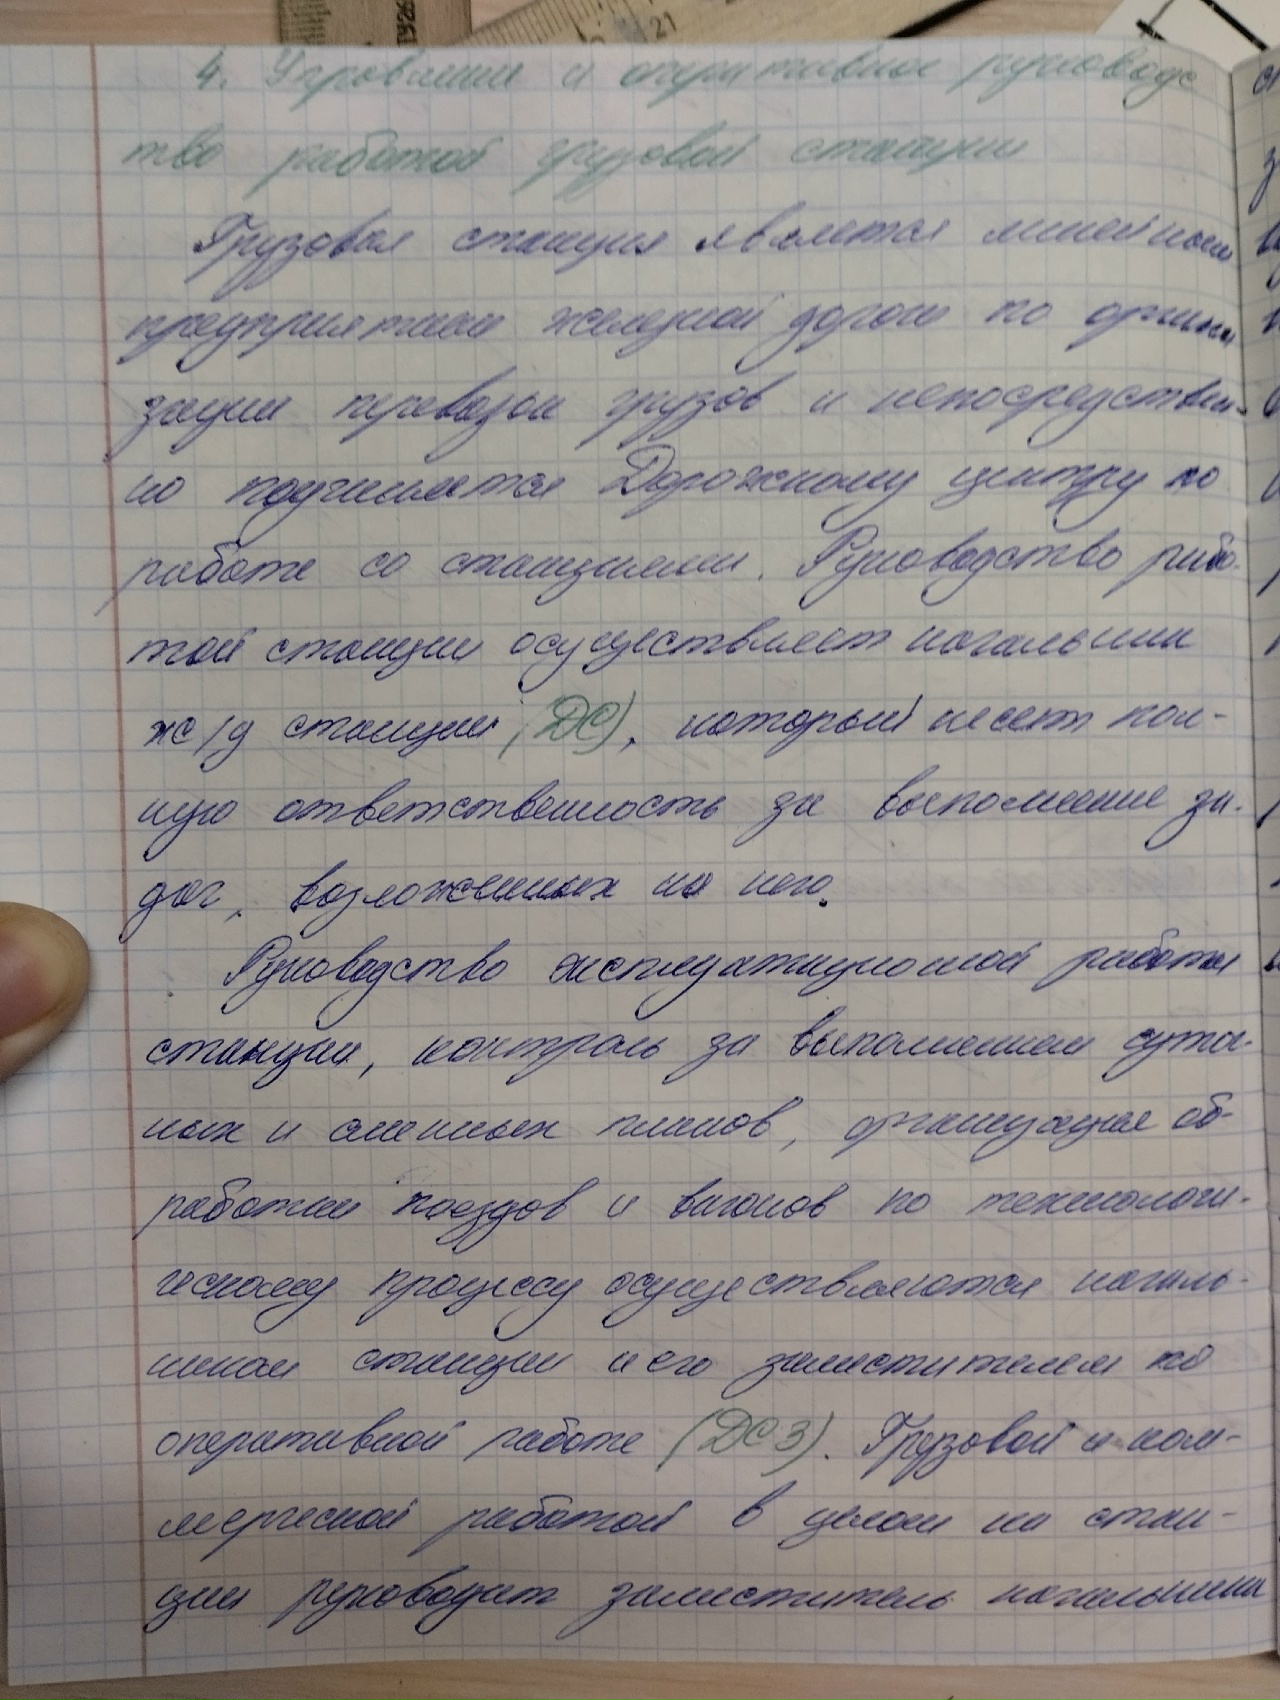 4. Управление и оперативное руководс
тво работой грузовой станции
Грузовая станция является линейным
предприятием железной дороги по органи
зации перевозок грузов и непосредствен-
но подчиняется Дорожному центру по
работе со станциями. Руководство рабо-
той станции осуществляет начальник
ж/д станции (ДС), который несет пол-
ную ответственность за выполнение за-
дач, возложенных на него.
Руководство эксплуатационной работы
станции, контроль за выполнением суточ-
ных и сменных планов, организация об-
работки поездов и вагонов по технологи-
ческому процессу осуществляются началь-
ником станции и его заместителем по
оперативной работе (ДСЗ). Грузовой и ком-
мерческой работой в целом на стан-
ции руководит заместитель начальника